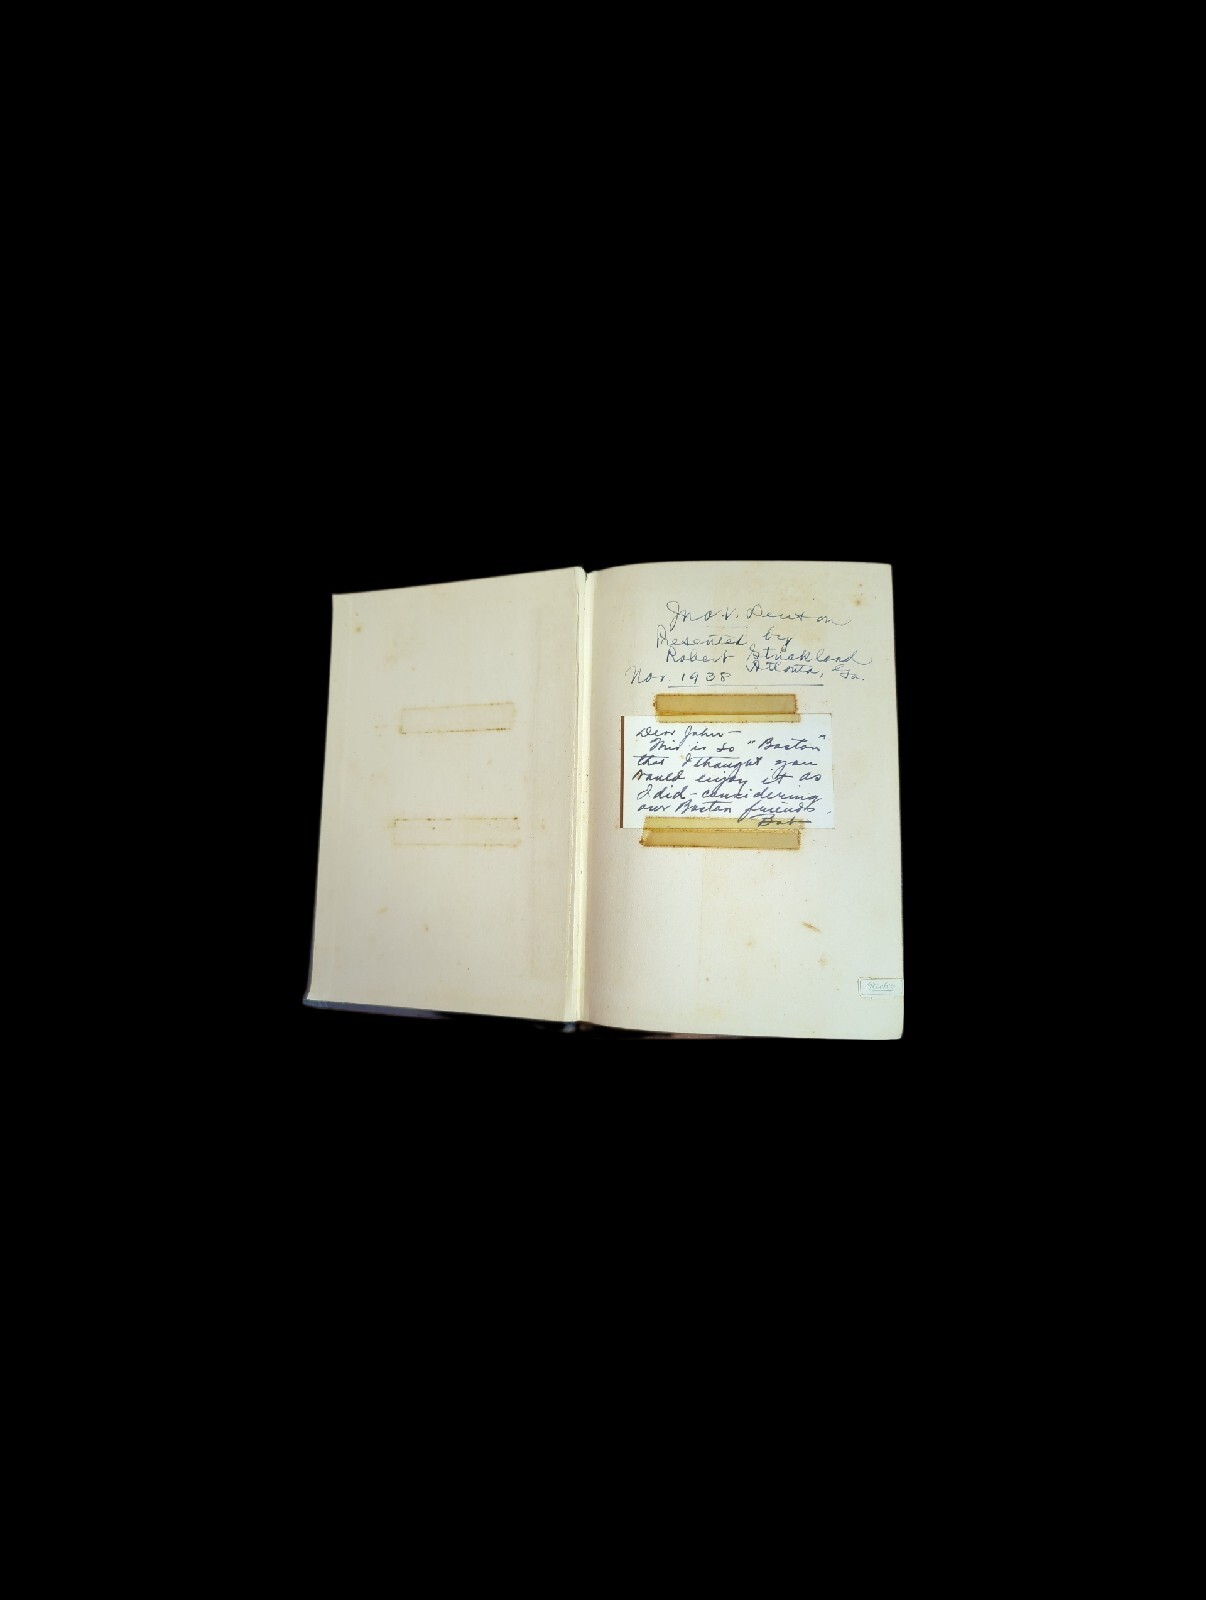 Jno. V. Denton
Presented by
Robert Strickland
Atlanta, Ga.
Nov. 1938
Dear John -
This is so "Boston"
that I thought you
would enjoy it as
I did - considering
our Boston friends.
Bob
Rich's